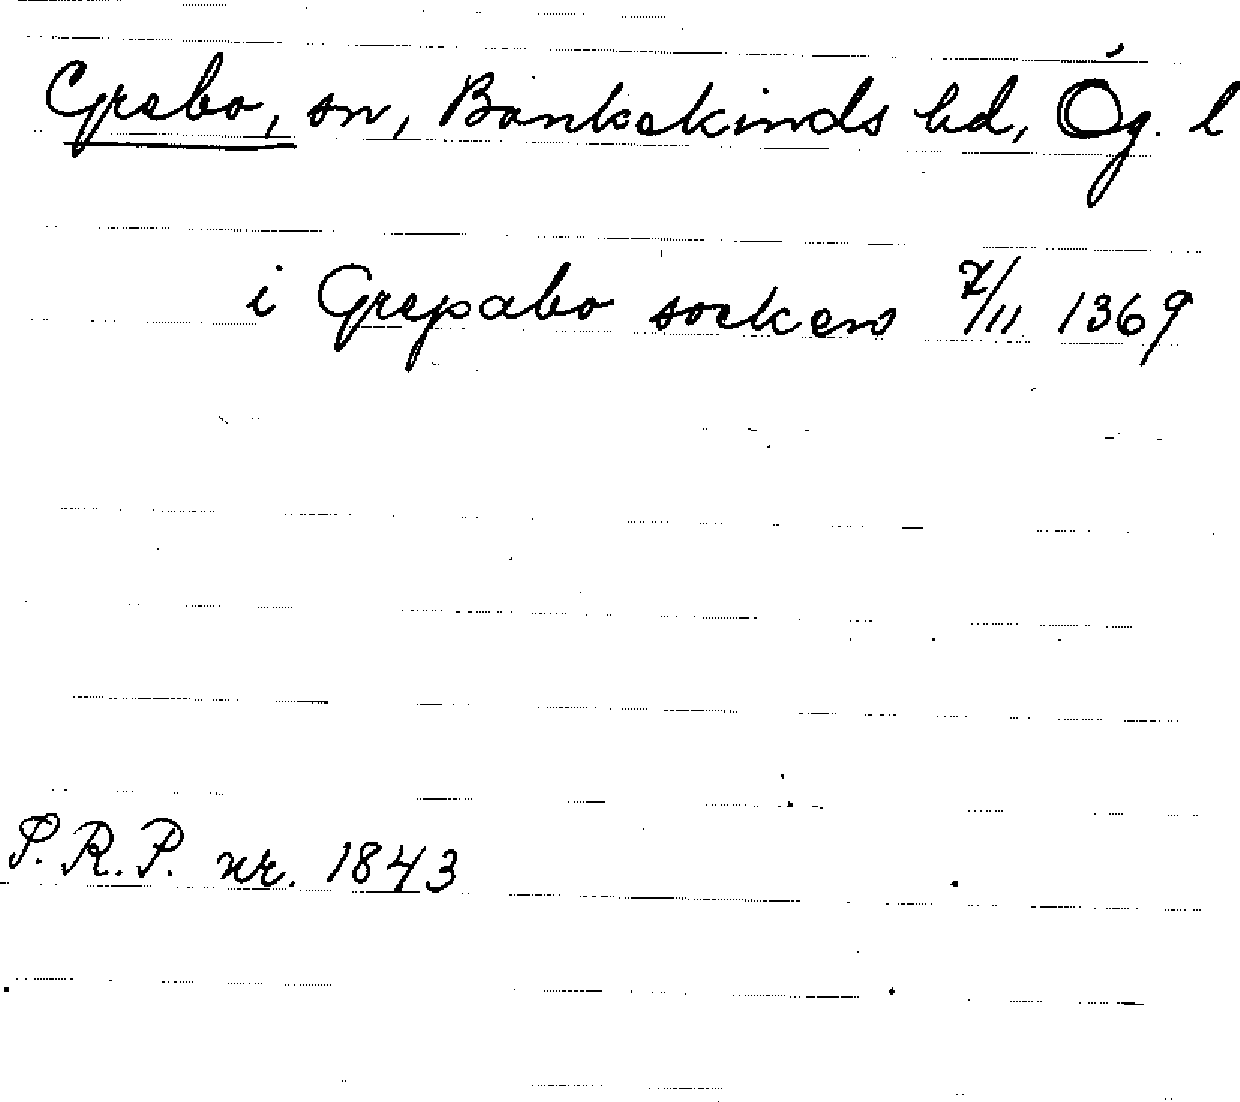 Grebo, sn, Bankekinds hd, Ög. l
i Grepabo socken 7/11 1369
S.R.P. nr. 1843